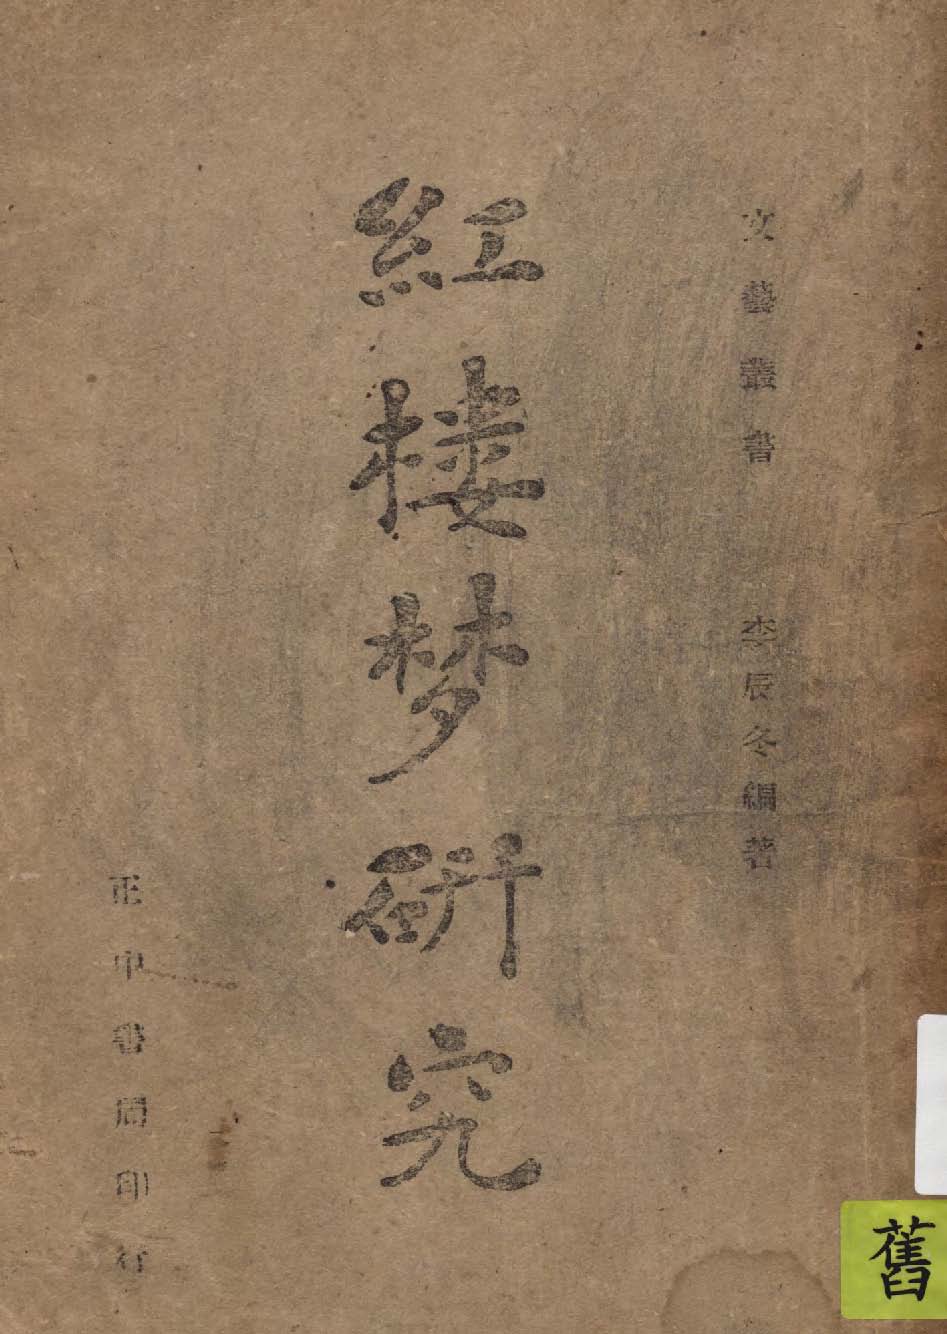 文藝叢書　李辰冬編著
紅楼梦研究
正中書局印行
舊